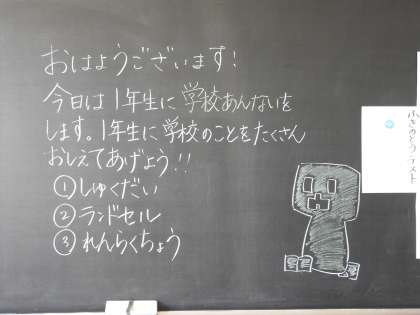 おはようございます!
今日は1年生に学校あんないを
します。1年生に学校のことをたくさん
おしえてあげよう!!
①しゅくだい
②ランドセル
③れんらくちょう